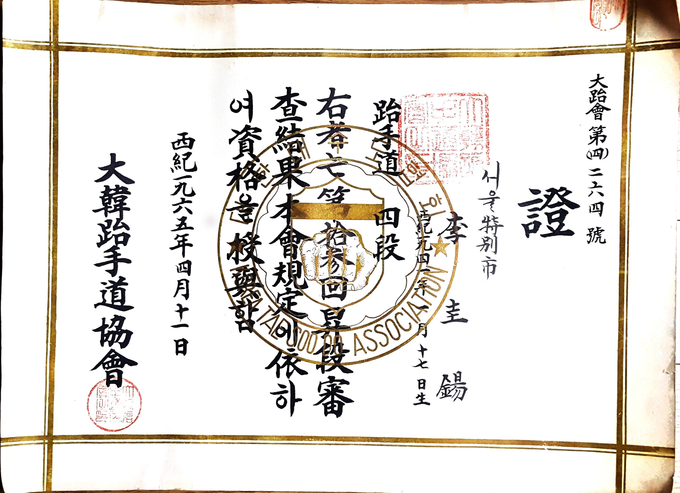 大跆會 第(四)二六四 號
證
서울特別市
李圭錫
西紀一九四一年一月十七日生
跆手道 四段
右者는 第拾參回昇段審
査結果本會規定에依하
여資格을 授與함
西紀一九六五年四月十一日
大韓跆手道協會
TAE SOO DO ASSOCIATION